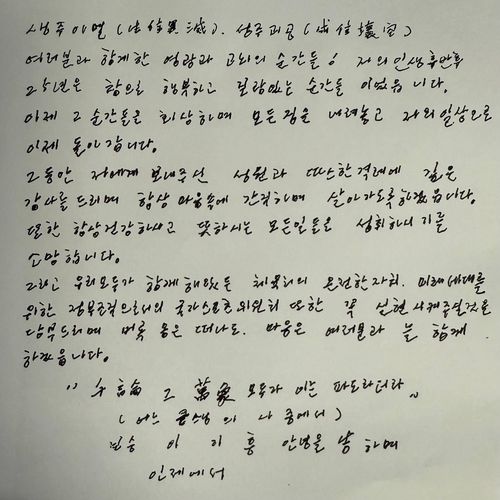 생주이멸 (生住異滅). 성주괴공 (成住壞空)
여러분과 함께한 영광과 고뇌의 순간들! 저의 인생 후반부
25년은 참으로 행복하고 보람있는 순간들 이었읍니다.
이제 그 순간들을 회상하며 모든짐을 내려놓고 저의일상으로
이제 돌아갑니다.
그동안 저에게 보내주신 성원과 따스한격려에 깊은
감사를 드리며 항상 마음속에 간직하며 살아가도록하겠읍니다.
또한 항상건강하시고 뜻하시는 모든일들을 성취하시기를
소망합니다.
그리고 우리모두가 함께해왔든 체육회의 온전한자치. 미래세대를
위한 정부조직으로서의 국가스포츠위원회 또한 꼭 실현시켜주실것을
당부드리며 비록 몸은 떠나도. 마음은 여러분과 늘 함께
하겠읍니다.
" 勿論 그 萬象 모두가 이는 파도라더라 "
( 어느 의 나 중에서 )
이 기 흥 안녕을 하며
인제에서